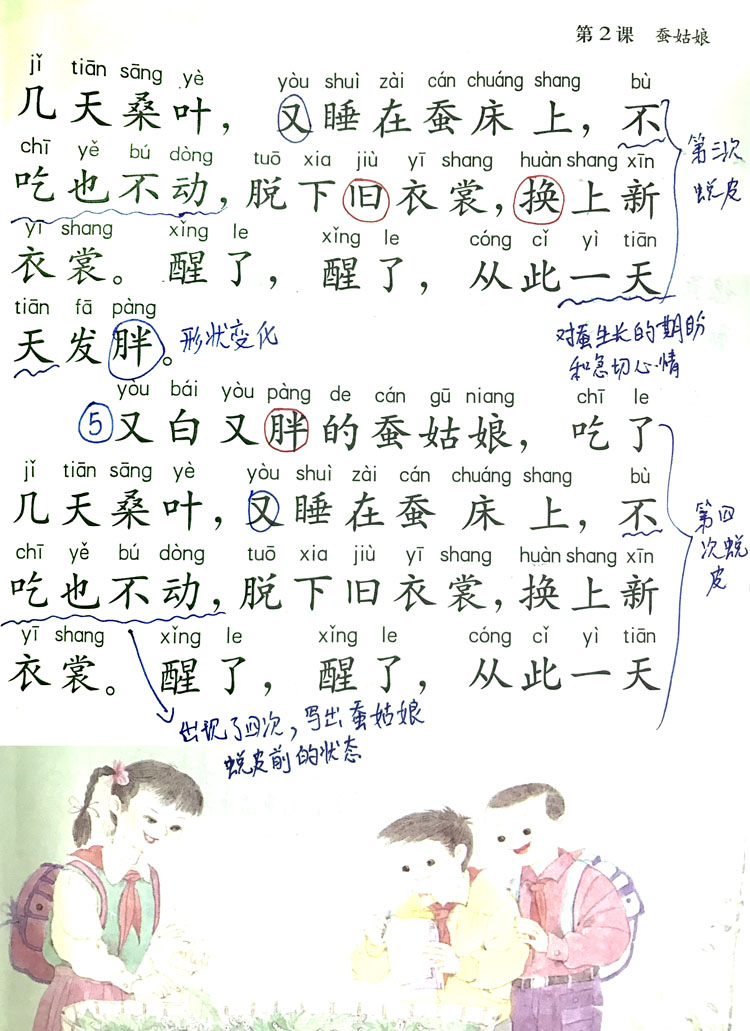 第2课 蚕姑娘
jǐ tiān sāng yè yòu shuì zài cán chuáng shang bù
几天桑叶，又睡在蚕床上，不
chī yě bú dòng tuō xia jiù yī shang huàn shang xīn
吃也不动，脱下旧衣裳，换上新
yī shang xǐng le xǐng le cóng cǐ yì tiān
衣裳。醒了，醒了，从此一天
tiān fā pàng
天发胖。
第三次
蜕皮
形状变化
对蚕生长的期盼
和急切心情
yòu bái yòu pàng de cán gū niang chī le
⑤又白又胖的蚕姑娘，吃了
jǐ tiān sāng yè yòu shuì zài cán chuáng shang bù
几天桑叶，又睡在蚕床上，不
chī yě bú dòng tuō xia jiù yī shang huàn shang xīn
吃也不动，脱下旧衣裳，换上新
yī shang xǐng le xǐng le cóng cǐ yì tiān
衣裳。醒了，醒了，从此一天
第四
次蜕
皮
出现了四次，写出蚕姑娘
蜕皮前的状态